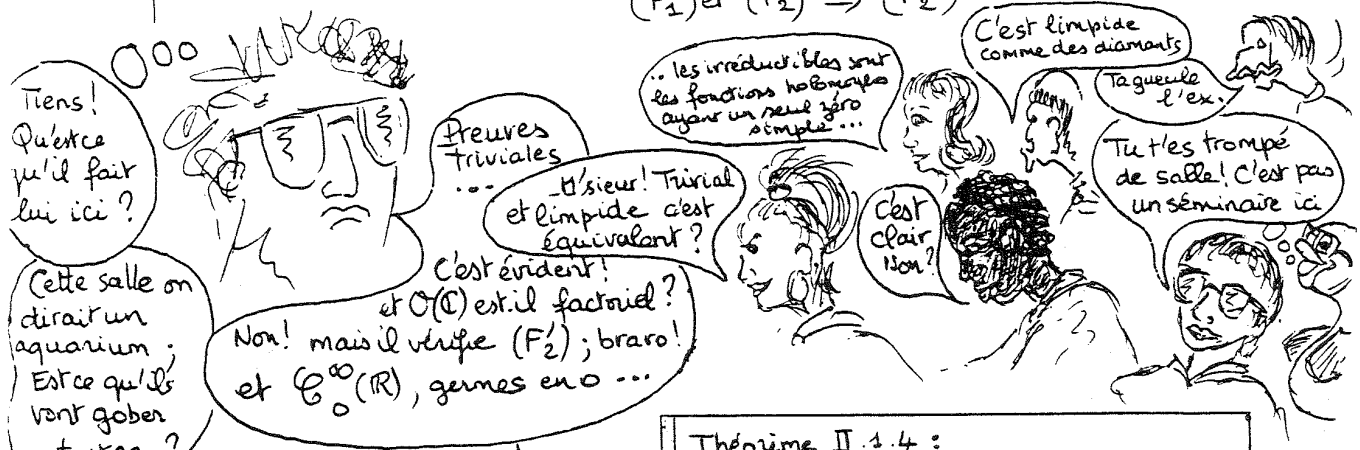 (F1) et (F2) → (F2')
Tiens!
Qu'est ce
qu'il fait
lui ici ?
Cette salle on
dirait un
aquarium ;
Est ce qu'ils
vont gober
Preuves
triviales
...
M'sieur! Trivial
et limpide c'est
équivalent ?
C'est évident!
et O(ℂ) est.il factoriel ?
Non! mais il vérifie (F'2) ; bravo!
et C∞0(ℝ), germes en o ...
.. les irréductibles sont
les fonctions holomorphes
ayant un seul zéro
simple ...
C'est limpide
comme des diamants
Ta gueule
l'ex.
C'est
clair
Non?
Tu t'es trompé
de salle! C'est pas
un séminaire ici
Théorème II.1.4 :